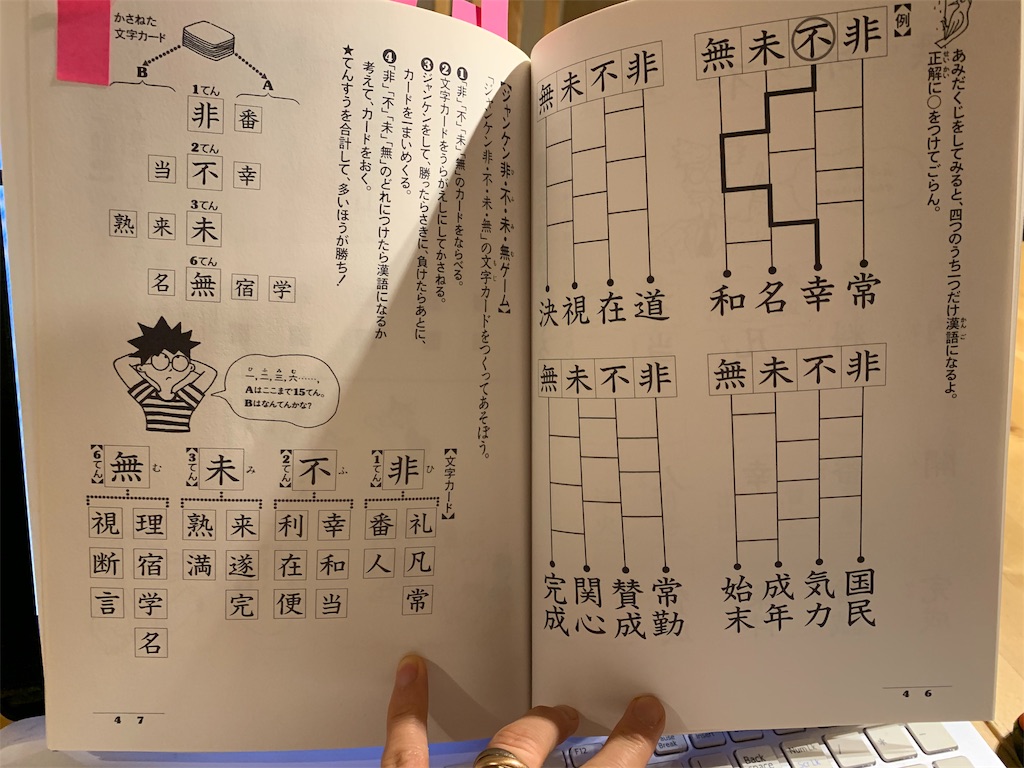 あみだくじをしてみると、四つのうち一つだけ漢語になるよ。
正解に○をつけてごらん。
【例】
非 不 未 無
常 幸 名 和
非 不 未 無
道 在 視 決
非 不 未 無
国民 気力 成年 始末
非 不 未 無
常勤 賛成 関心 完成
46
【ジャンケン非・不・未・無ゲーム】
「ジャンケン非・不・未・無」の文字カードをつくってあそぼう。
❶「非」「不」「未」「無」のカードをならべる。
❷文字カードをうらがえしにしてかさねる。
❸ジャンケンをして、勝ったらさきに、負けたらあとに、
カードを一まいめくる。
❹「非」「不」「未」「無」のどれにつけたら漢語になるか
考えて、カードをおく。
★てんすうを合計して、多いほうが勝ち!
かさねた
文字カード
B A
1てん
非 番
2てん
当 不 幸
3てん
熟 来 未
6てん
名 無 宿 学
一、二、三、六……、
Aはここまで15てん。
Bはなんてんかな?
【文字カード】
非 ひ
【1てん】
礼 番
凡 人
常
不 ふ
【2てん】
幸 利
和 在
当 便
未 み
【3てん】
来 熟
遂 満
完
無 む
【6てん】
理 視
宿 断
学 言
名
47
F12
Pause
Break
Insert
Back
space